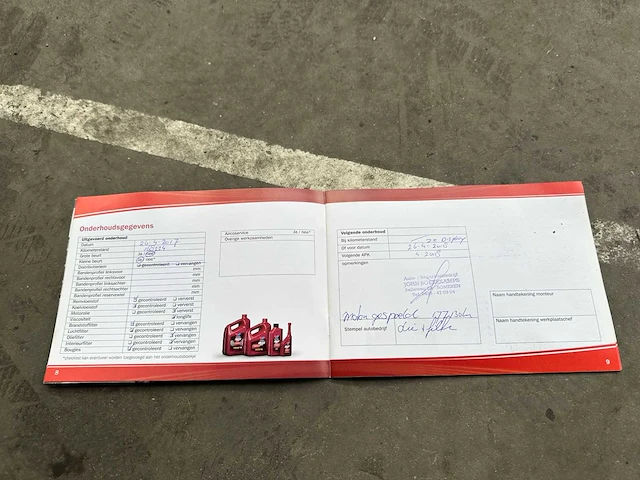 Onderhoudsgegevens
Uitgevoerd onderhoud
Datum 26-4-2017
Kilometerstand
Grote beurt
Kleine beurt
Distributieriem gecontroleerd vervangen
Bandenprofiel linksvoor mm
Bandenprofiel rechtsvoor mm
Bandenprofiel linksachter mm
Bandenprofiel rechtsachter mm
Bandenprofiel reservewiel mm
Remvloeistof gecontroleerd ververst
Koelvloeistof gecontroleerd ververst
Motorolie gecontroleerd ververst
Viscositeit longlife
Brandstoffilter gecontroleerd vervangen
Luchtfilter gecontroleerd vervangen
Oliefilter gecontroleerd vervangen
Interieurfilter gecontroleerd vervangen
Bougies gecontroleerd vervangen
*checklist kan eventueel worden toegevoegd aan het onderhoudsboekje
8
Aircoservice Ja / nee*
Overige werkzaamheden
Volgende onderhoud
Bij kilometerstand
Of vóór datum 26-4-2018
Volgende APK 4-2018
opmerkingen
Motor gespoeld
Stempel autobedrijf Olie + filter
Naam handtekening monteur
Naam handtekening werkplaatschef
9